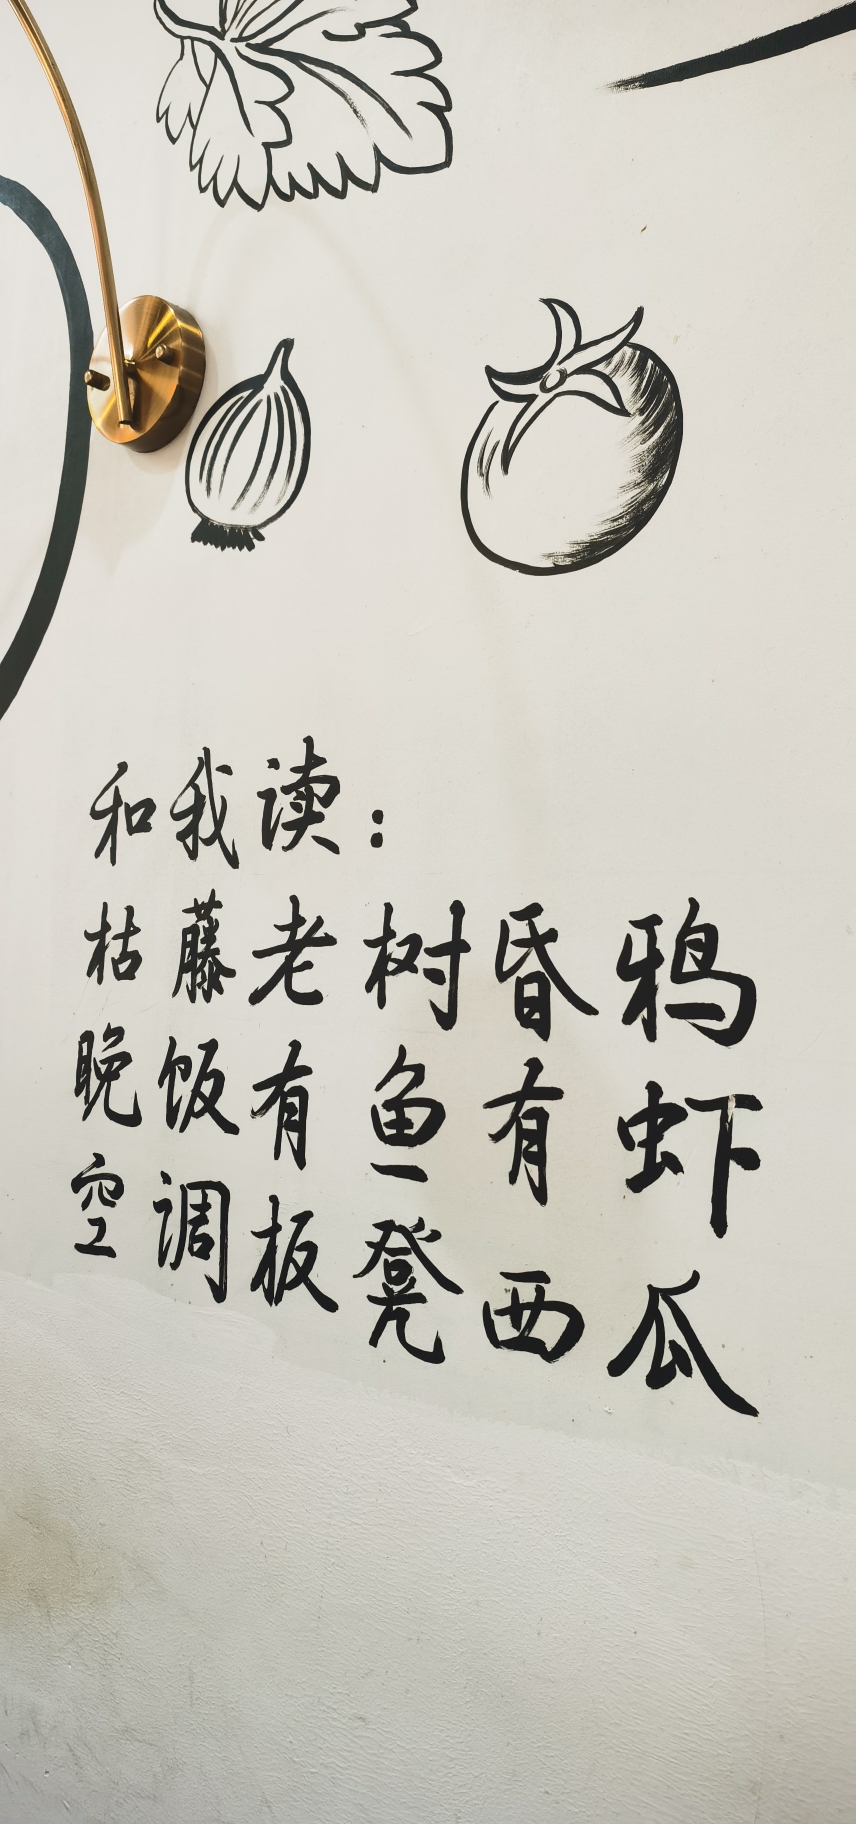 和我读：
枯藤老树昏鸦
晚饭有鱼有虾
空调板凳西瓜